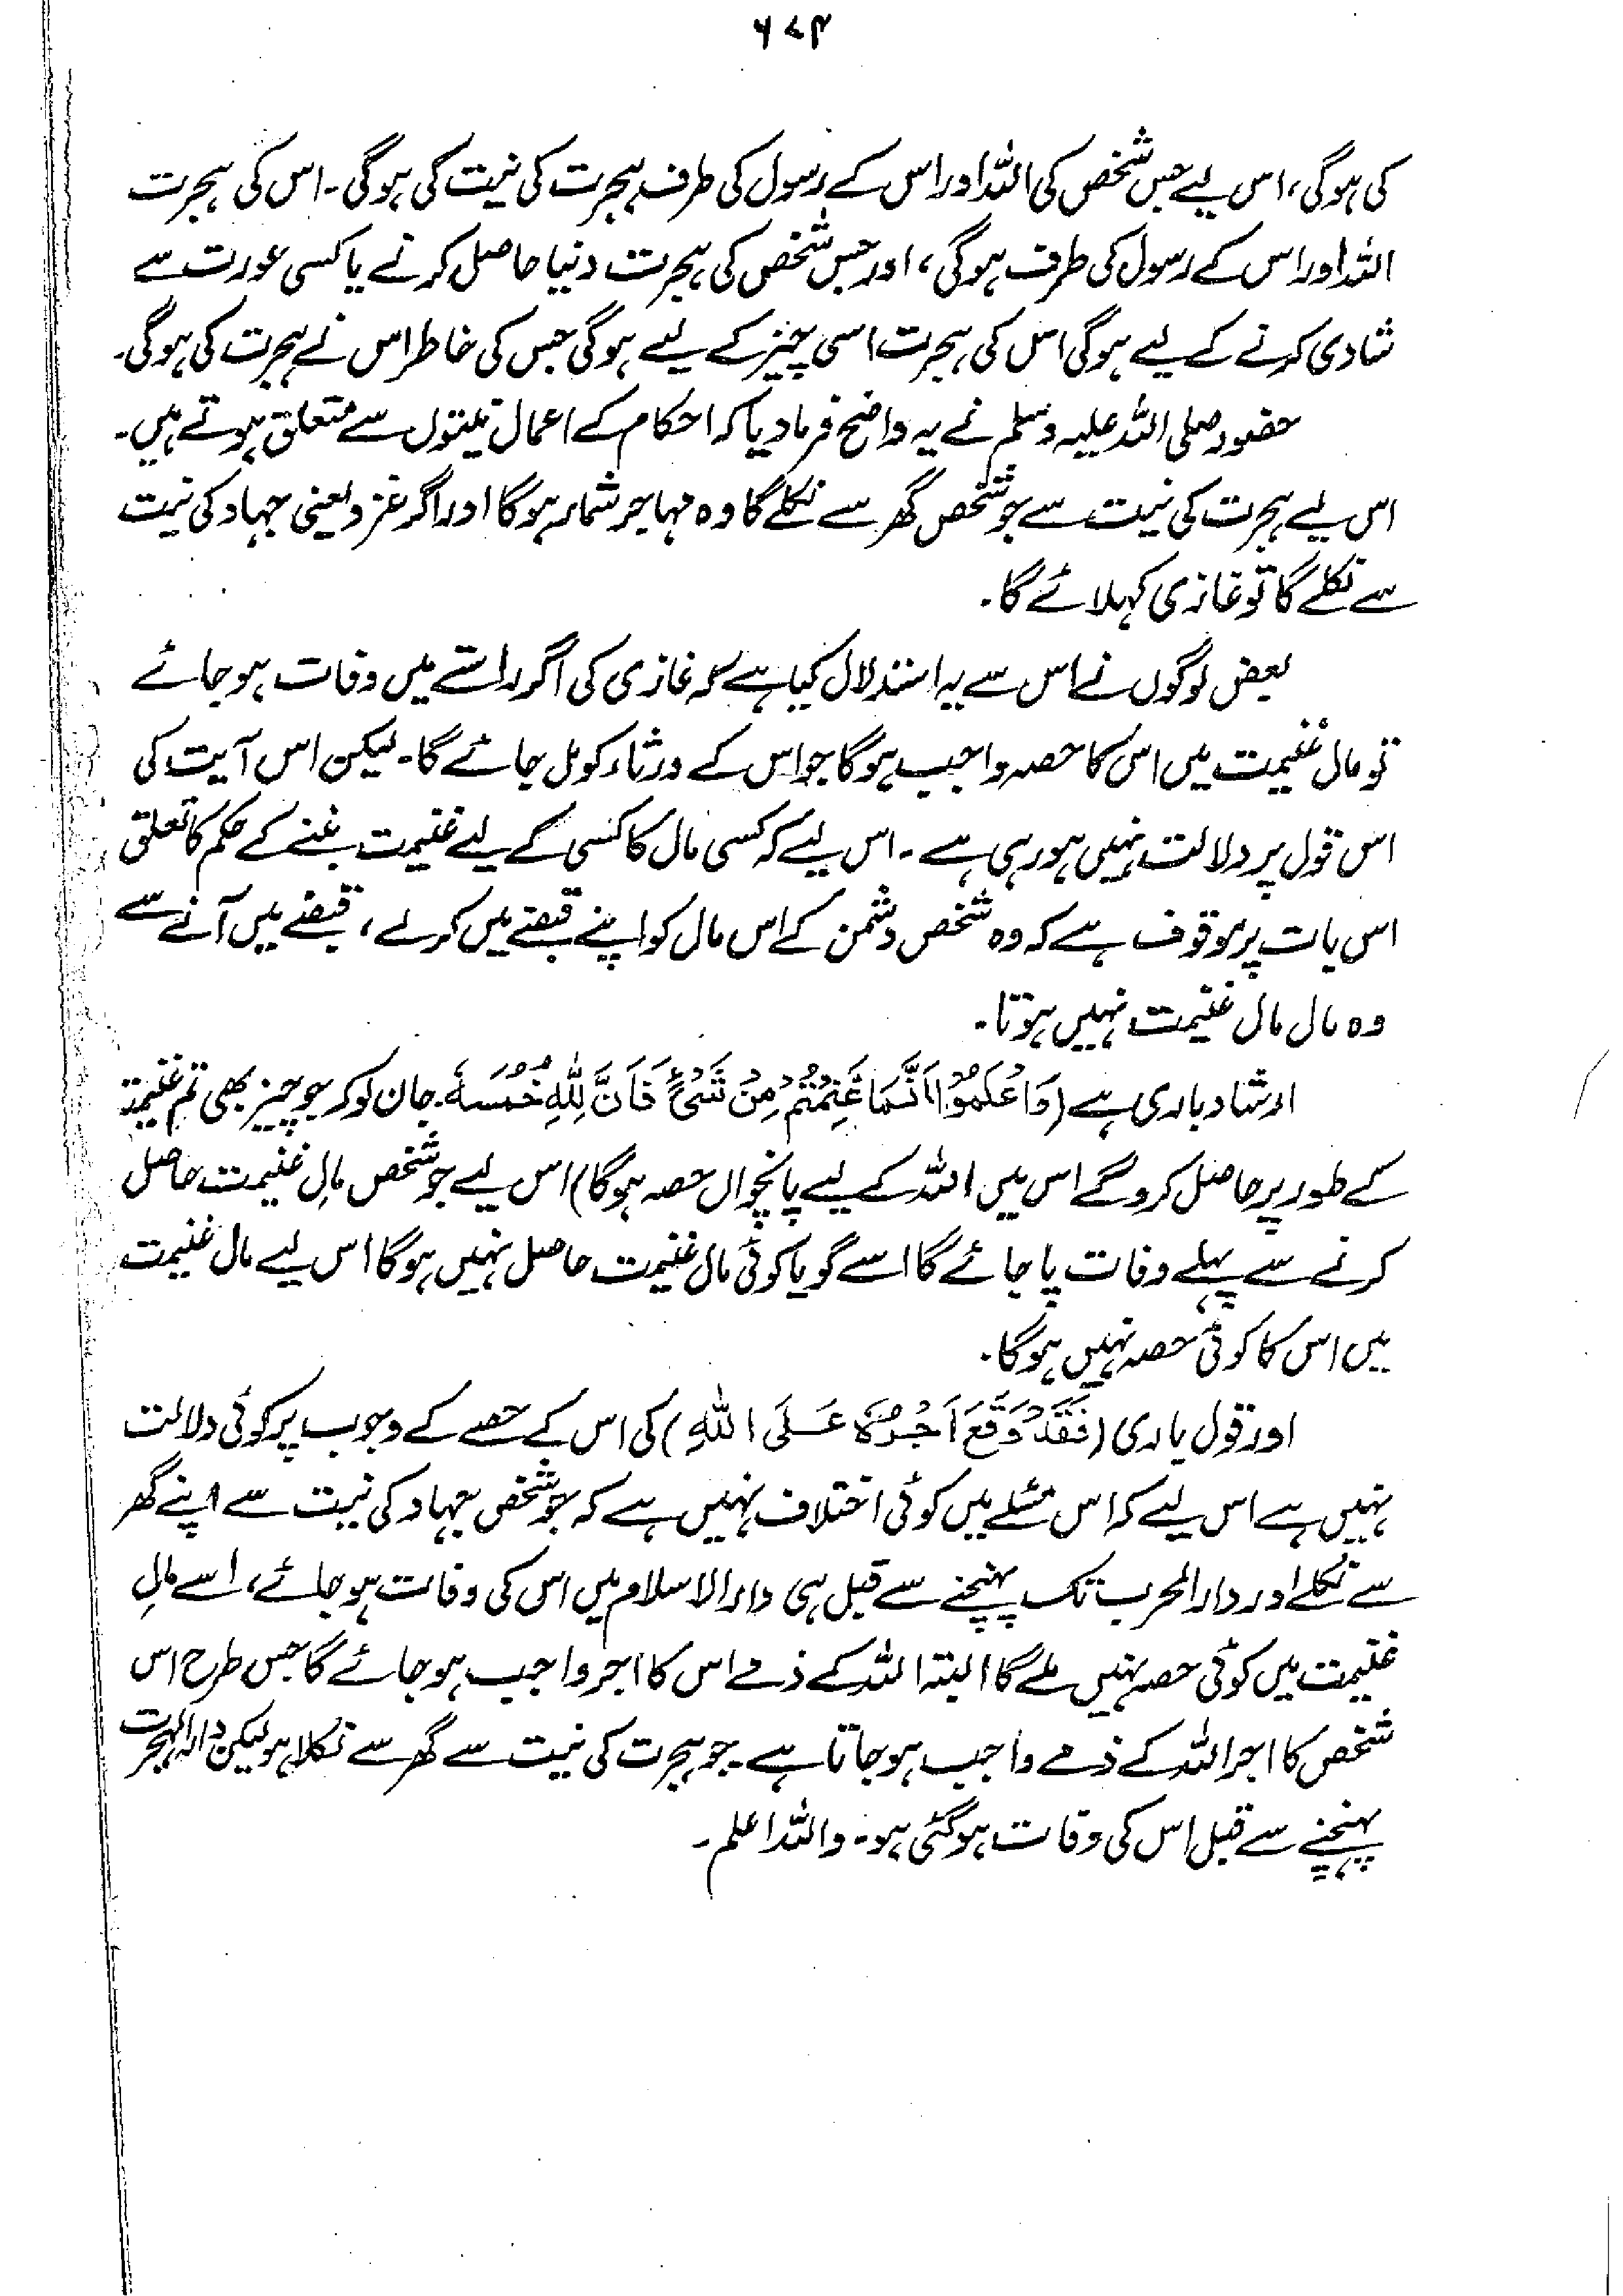 ۶۷۴
کی ہوگی، اس لیے جس شخص کی اللہ اور اس کے رسول کی طرف ہجرت کی نیت کی ہوگی۔ اس کی ہجرت
اللہ اور اس کے رسول کی طرف ہوگی، اور جس شخص کی ہجرت دنیا حاصل کرنے یا کسی عورت سے
شادی کرنے کے لیے ہوگی اس کی ہجرت اسی چیز کے لیے ہوگی جس کی خاطر اس نے ہجرت کی ہوگی۔
حضور صلی اللہ علیہ وسلم نے یہ واضح فرما دیا کہ احکام کے اعمال نیتوں سے متعلق ہوتے ہیں۔
اس لیے ہجرت کی نیت سے جو شخص گھر سے نکلے گا وہ مہاجر شمار ہوگا اور اگر غزو یعنی جہاد کی نیت
سے نکلے گا تو غازی کہلائے گا۔
بعض لوگوں نے اس سے یہ استدلال کیا ہے کہ غازی کی اگر راستے میں وفات ہو جائے
تو مال غنیمت میں اس کا حصہ واجب ہوگا جو اس کے ورثاء کو مل جائے گا۔ لیکن اس آیت کی
اس قول پر دلالت نہیں ہو رہی ہے۔ اس لیے کہ کسی مال کا کسی کے لیے غنیمت بننے کے حکم کا تعلق
اس بات پر موقوف ہے کہ وہ شخص دشمن کے اس مال کو اپنے قبضے میں کرلے، قبضے میں آنے سے
وہ مال مال غنیمت نہیں ہوتا۔
ارشاد باری ہے (وَاعْلَمُوْا اَنَّمَا غَنِمْتُمْ مِنْ شَیْءٍ فَاَنَّ لِلّٰہِ خُمُسَہٗ۔ جان لو کہ جو چیز بھی تم غنیمت
کے طور پر حاصل کروگے اس میں اللہ کے لیے پانچواں حصہ ہوگا) اس لیے جو شخص مالِ غنیمت حاصل
کرنے سے پہلے وفات پا جائے گا اسے گویا کوئی مال غنیمت حاصل نہیں ہوگا اس لیے مال غنیمت
میں اس کا کوئی حصہ نہیں ہوگا۔
اور قول باری (فَقَدْ وَقَعَ اَجْرُہٗ عَلَی اللّٰہِ) کی اس کے حصے کے وجوب پر کوئی دلالت
نہیں ہے اس لیے کہ اس مسئلے میں کوئی اختلاف نہیں ہے کہ جو شخص جہاد کی نیت سے اپنے گھر
سے نکلے اور دارالحرب تک پہنچنے سے قبل ہی دارالاسلام میں اس کی وفات ہو جائے، اسے مالِ
غنیمت میں کوئی حصہ نہیں ملے گا البتہ اللہ کے ذمے اس کا اجر واجب ہو جائے گا جس طرح اس
شخص کا اجر اللہ کے ذمے واجب ہو جاتا ہے۔ جو ہجرت کی نیت سے گھر سے نکلا ہو لیکن دارالہجرت
پہنچنے سے قبل اس کی وفات ہوگئی ہو۔ واللہ اعلم۔